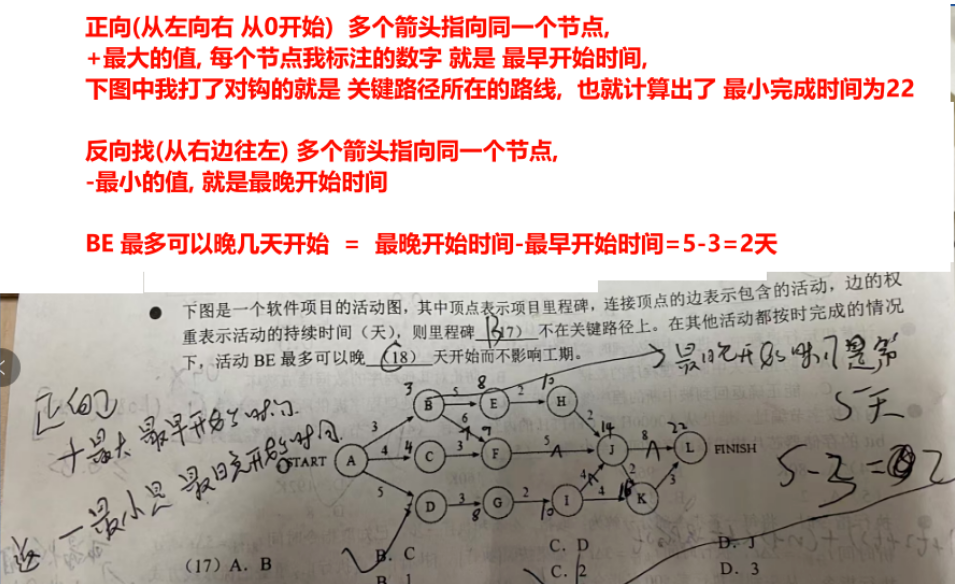 正向(从左向右 从0开始)  多个箭头指向同一个节点,
+最大的值, 每个节点我标注的数字 就是 最早开始时间,
下图中我打了对钩的就是 关键路径所在的路线,  也就计算出了 最小完成时间为22
反向找(从右边往左) 多个箭头指向同一个节点,
-最小的值, 就是最晚开始时间
BE 最多可以晚几天开始  =  最晚开始时间-最早开始时间=5-3=2天
● 下图是一个软件项目的活动图，其中顶点表示项目里程碑，连接顶点的边表示包含的活动，边的权
重表示活动的持续时间（天），则里程碑 B（17） 不在关键路径上。在其他活动都按时完成的情况
下，活动 BE 最多可以晚 （18） 天开始而不影响工期。
最晚开始时间是第
5天
5-3=2
正向
+最大 最早开始时间
-最小是 最晚开始时间
3 B 5 8 E 2 10 H 2
3 6 7 14 8 22
START A 4 4 C 3 F 5 J L FINISH
5 4 2 3
D 3 8 G 2 10 I 4 16 K
（17）A. B  B. C  C. D  D. J
B. 1  C. 2  D. 3